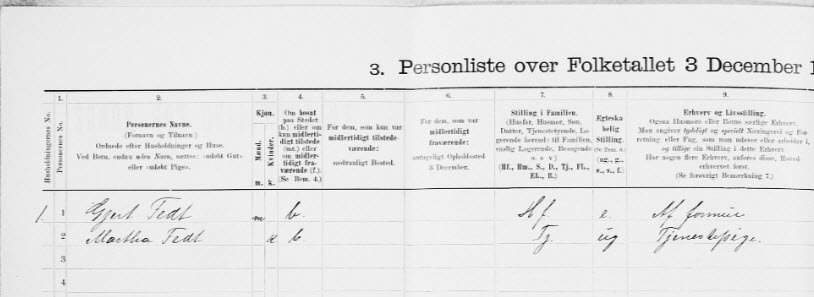 3. Personliste over Folketallet 3 December 1
Husholdningernes No.
Personernes No.
1.
2.
Personernes Navne.
(Fornavn og Tilnavn)
Ordnede efter Husholdninger og Huse.
Ved Børn, endnu uden Navn, sættes: «udøbt Gut»
eller «udøbt Pige».
3.
Kjøn.
Mænd.
Kvinder.
m.
k.
4.
Om bosat
paa Stedet
(b.) eller om
kun midler-
tidigt tilstede
(mt.) eller
om midler-
tidigt fra-
værende (f.)
(Se Bem. 4.)
5.
For dem, som kun var
midlertidigt tilstede-
værende:
sædvanligt Bosted.
6.
For dem, som var
midlertidigt
fraværende:
antageligt Opholdssted
3 December.
7.
Stilling i Familien.
(Husfar, Husmor, Søn,
Datter, Tjenestetyende, Lo-
gerende hørende til Familien,
enslig Logerende, Besøgende
o. s. v.)
(Hf., Hm., S., D., Tj., Fl.,
El., B.)
8.
Egteska-
belig
Stilling.
(Se Bem. 6.)
(ug., g.,
e., s., f.)
9.
Erhverv og Livsstilling.
Ogsaa Husmors eller Børns særlige Erhverv.
Man angiver tydeligt og specielt Næringsvei og For-
retning eller Fag, som man udøver eller arbeider i,
og tillige sin Stilling i dette Erhverv.
Har nogen flere Erhverv, anføres disse, Hoved-
erhvervet først.
(Se forøvrigt Bemerkning 7.)
1. 1 Gjert Fedt m b. Hf. e. Af formue
2 Martha Fedt k b. Tj. ug Tjenestepige.
3
4